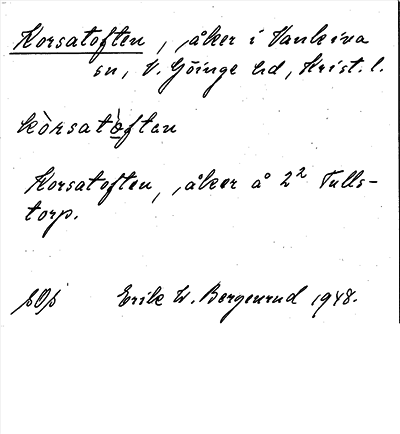 Korsatoften, åker i Vankiva
sn, V. Göinge hd, Krist. l.
kòrsatòften
Korsatoften, åker å 2² Tulls-
torp.
Erik W. Bergenrud 1948.